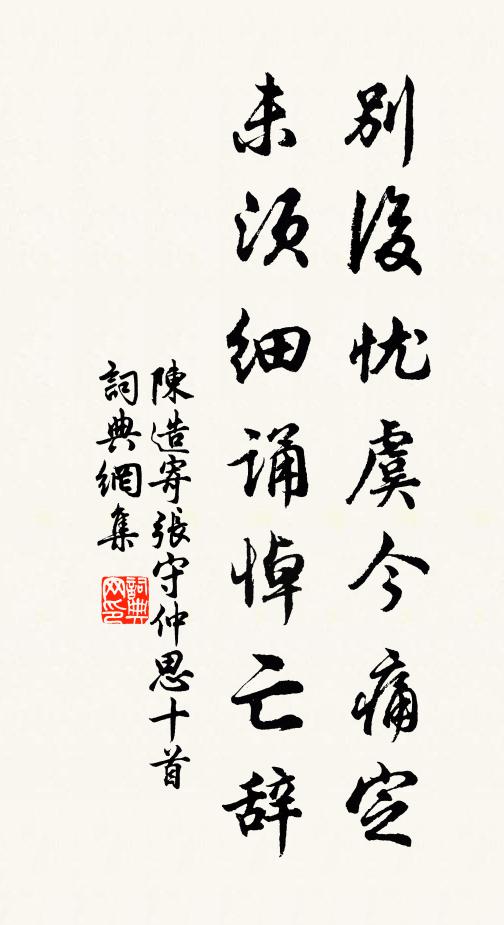 別後忧虞今痛定
未须细诵悼亡辞
陳造寄張守仲思十首
詞典網集
詞典網印